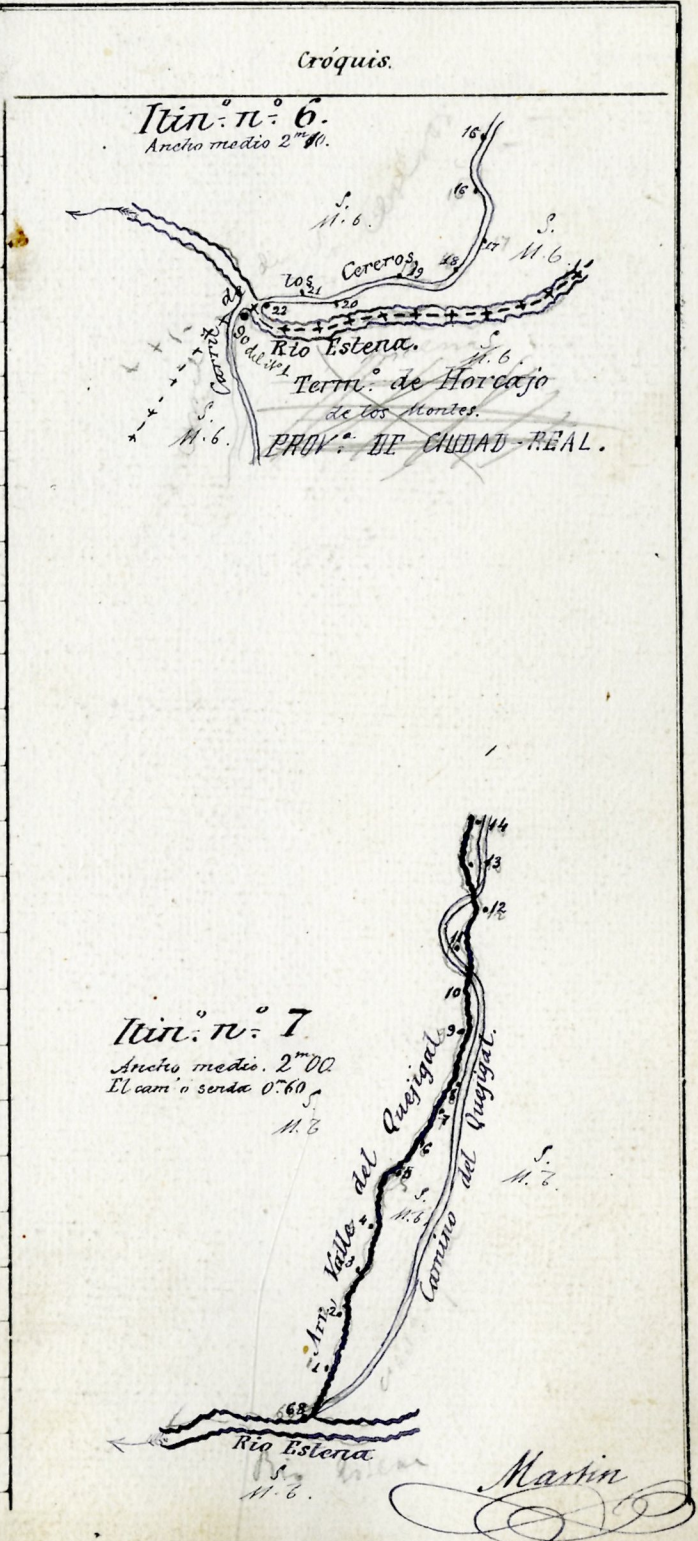 Cróquis.
Itin.º n.º 6.
Ancho medio 2ᵐ10.
16
16
17
18
19
20
21
22
S.
M. b.
S.
M. b.
Carril de los Cereros
90 del it.º 1
Rio Estena.
S.
M. b.
Term.º de Horcajo
de los Montes.
S.
M. b.
PROV.ª DE CIUDAD-REAL.
14
13
12
11
10
9
8
7
6
5
4
3
2
1
68
Itin.º n.º 7
Ancho medio. 2ᵐ00
El cam.º o senda 0ᵐ.60
S.
M. b
Arr.º Valle del Quejigal
Camino del Quejigal.
S.
M. b.
S.
M. b.
Rio Estena
S.
M. b.
Martin